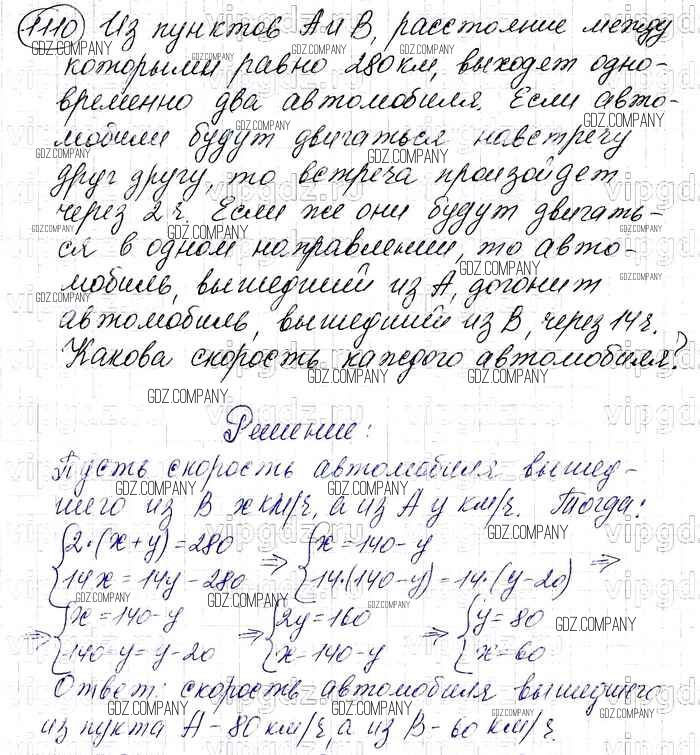 1110 Из пунктов A и B, расстояние между
которыми равно 280 км, выходят одно-
временно два автомобиля. Если авто-
мобили будут двигаться навстречу
друг другу, то встреча произойдет
через 2 ч. Если же они будут двигать-
ся в одном направлении, то авто-
мобиль, вышедший из A, догонит
автомобиль, вышедший из B, через 14 ч.
Какова скорость каждого автомобиля?
Решение:
Пусть скорость автомобиля вышед-
шего из B x км/ч, а из A y км/ч. Тогда:
{2·(x+y)=280 ⇒ {x=140-y ⇒
{14x=14y-280 {14·(140-y)=14·(y-20)
⇒ {x=140-y ⇒ {2y=160 ⇒ {y=80
{140-y=y-20 {x=140-y {x=60
Ответ: скорость автомобиля вышедшего
из пункта A - 80 км/ч, а из B - 60 км/ч.
GDZ.COMPANY
vipgdz.ru